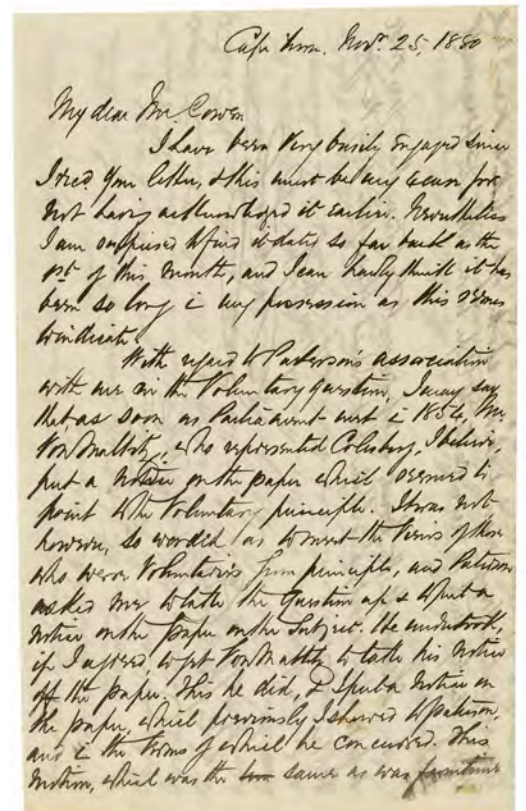 Cape Town. Novr. 25, 1880
My dear Mr. Cowen
I have been very busily engaged since
I recd. your letter, & this must be my excuse for
not having acknowledged it earlier. Nevertheless
I am surprised to find it dated so far back as the
1st of this month, and I can hardly think it has
been so long in my possession as this seems
to indicate.
With regard to Paterson's association
with me in the Voluntary question, I may say
that, as soon as Parliament met in 1854, Mr.
Von Maltitz, who represented Colesberg, I believe,
put a notice on the paper which seemed to
point to the Voluntary principle. It was not
however, so worded as to meet the views of those
who were Voluntaries from principle, and Paterson
asked me to take the question up & to put a
notice on the paper on the subject. He undertook,
if I agreed to get Von Maltitz to take his notice
off the paper. This he did, & I put a notice on
the paper, which previously I showed to Paterson,
and in the terms of which he concurred. This
motion, which was the same as was